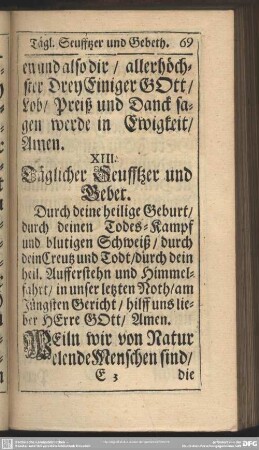 Tägl. Seufftzer und Gebeth. 69
en und also dir / allerhöch-
ster Drey Einiger GOtt /
Lob / Preiß und Danck sa-
gen werde in Ewigkeit /
Amen.
XIII.
Täglicher Seufftzer und
Gebet.
Durch deine heilige Geburt /
durch deinen Todes-Kampf
und blutigen Schweiß / durch
dein Creutz und Todt / durch dein
heil. Aufferstehn und Himmel-
fahrt / in unser letzten Noth / am
Jüngsten Gericht / hilff uns lie-
ber HErre GOtt / Amen.
WEiln wir von Natur
elende Menschen sind /
E 3 die
DFG